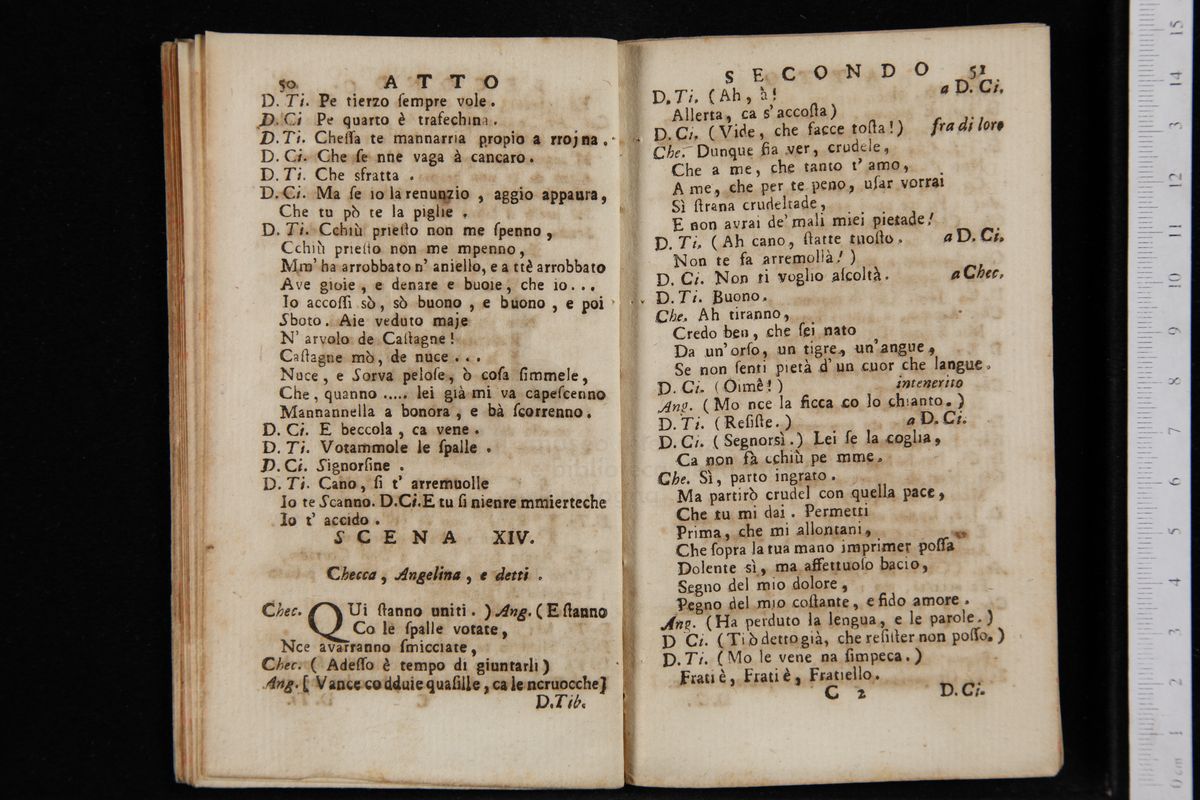 50 ATTO
D. Ti. Pe tierzo ſempre vole.
D. Ci Pe quarto è traſechina.
D. Ti. Cheſſa te mannarria propio a rrojna.
D. Ci. Che ſe nne vaga à cancaro.
D. Ti. Che sfratta.
D. Ci. Ma ſe io la renunzio, aggio appaura,
Che tu pò te la piglie.
D. Ti. Cchiù prieſto non me ſpenno,
Cchiù prieſto non me mpenno,
Mm' ha arrobbato n' aniello, e a ttè arrobbato
Ave gioie, e denare e buoie, che io...
Io accoſſì sò, sò buono, e buono, e poi
Sboto. Aie veduto maje
N' arvolo de Caſtagne!
Caſtagne mò, de nuce...
Nuce, e Sorva peloſe, ò coſa ſimmele,
Che, quanno ..... lei già mi va capeſcenno
Mannannella a bonora, e bà ſcorrenno.
D. Ci. E beccola, ca vene.
D. Ti. Votammole le ſpalle.
D. Ci. Signorſine.
D. Ti. Cano, ſi t' arremuolle
Io te Scanno. D.Ci. E tu ſi nienre mmierteche
Io t' accido.
SCENA XIV.
Checca, Angelina, e detti.
Chec. QUi ſtanno uniti.) Ang. (E ſtanno
Co le ſpalle votate,
Nce avarranno ſmicciate,
Chec. (Adeſſo è tempo di giuntarli)
Ang. [Vance co dduie quaſille, ca le ncruocche]
D.Tib.
SECONDO 51
D. Ti. (Ah, à! a D. Ci.
Allerta, ca s' accoſta)
D. Ci. (Vide, che facce toſta!) fra di loro
Che. Dunque ſia ver, crudele,
Che a me, che tanto t' amo,
A me, che per te peno, uſar vorrai
Sì ſtrana crudeltade,
E non avrai de' mali miei pietade!
D. Ti. (Ah cano, ſtatte tuoſto. a D. Ci.
Non te fa arremollà!)
D. Ci. Non ti voglio aſcoltà. a Chec.
D. Ti. Buono.
Che. Ah tiranno,
Credo ben, che ſei nato
Da un' orſo, un tigre, un' angue,
Se non ſenti pietà d' un cuor che langue.
D. Ci. (Oimè!) intenerito
Ang. (Mo nce la ficca co lo chianto.)
D. Ti. (Reſiſte.) a D. Ci.
D. Ci. (Segnorsì.) Lei ſe la coglia,
Ca non fà cchiù pe mme.
Che. Sì, parto ingrato.
Ma partirò crudel con quella pace,
Che tu mi dai. Permetti
Prima, che mi allontani,
Che ſopra la tua mano imprimer poſſa
Dolente sì, ma affettuoſo bacio,
Segno del mio dolore,
Pegno del mio coſtante, e fido amore.
Ang. (Ha perduto la lengua, e le parole.)
D Ci. (Ti ò detto già, che reſiſter non poſſo.)
D. Ti. (Mo le vene na ſimpeca.)
Frati è, Frati è, Fratiello.
C 2 D. Ci.